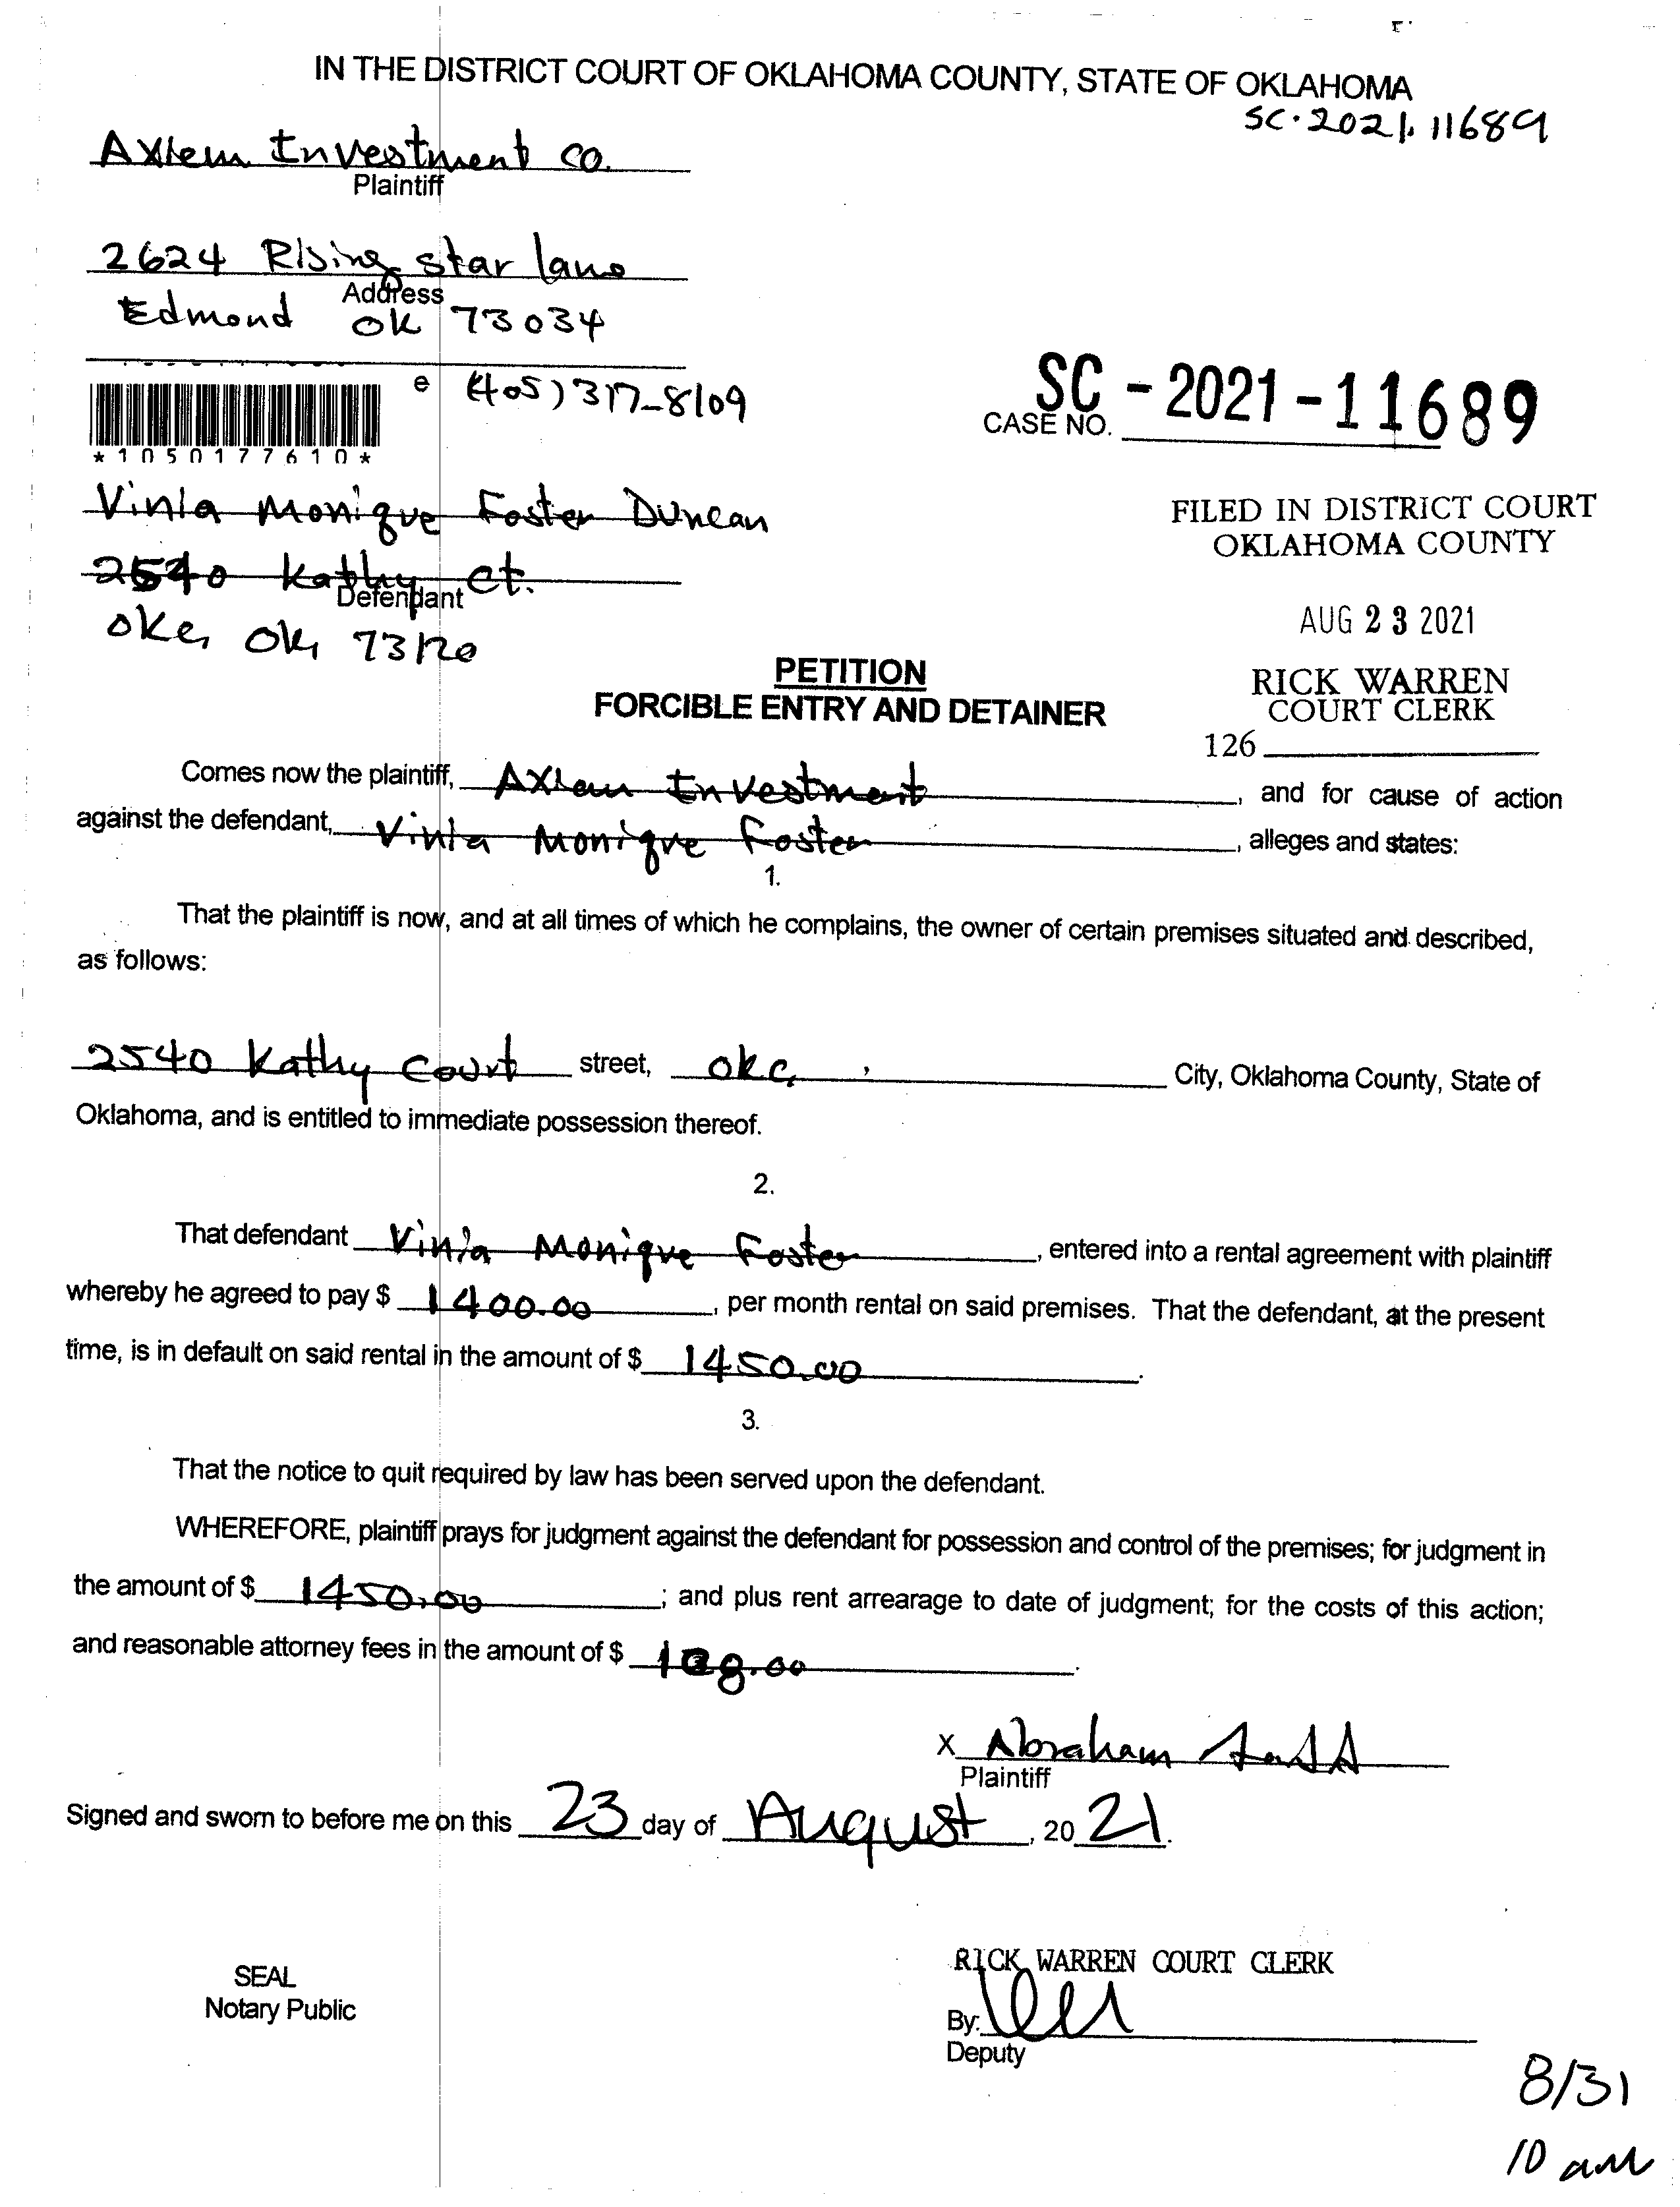 IN THE DISTRICT COURT OF OKLAHOMA COUNTY, STATE OF OKLAHOMA
SC-2021-11689
Axiem Investment co.
Plaintiff
2624 Rising star lane
Address
Edmond OK 73034
e (405) 317-8109
SC-2021-11689
CASE NO.
*1050177610*
Vinia Monique Foster Duncan
2540 Kathy ct.
Defendant
okc, Ok, 73120
FILED IN DISTRICT COURT
OKLAHOMA COUNTY
AUG 23 2021
RICK WARREN
COURT CLERK
126
PETITION
FORCIBLE ENTRY AND DETAINER
Comes now the plaintiff, Axiem Investment, and for cause of action
against the defendant, Vinia Monique Foster, alleges and states:
1.
That the plaintiff is now, and at all times of which he complains, the owner of certain premises situated and described,
as follows:
2540 Kathy Court street, okc, City, Oklahoma County, State of
Oklahoma, and is entitled to immediate possession thereof.
2.
That defendant Vinia Monique Foster, entered into a rental agreement with plaintiff
whereby he agreed to pay $ 1400.00, per month rental on said premises. That the defendant, at the present
time, is in default on said rental in the amount of $ 1450.00.
3.
That the notice to quit required by law has been served upon the defendant.
WHEREFORE, plaintiff prays for judgment against the defendant for possession and control of the premises; for judgment in
the amount of $ 1450.00; and plus rent arrearage to date of judgment; for the costs of this action;
and reasonable attorney fees in the amount of $
x Abraham
Plaintiff
Signed and sworn to before me on this 23 day of August, 2021.
SEAL
Notary Public
RICK WARREN COURT CLERK
By:
Deputy
8/31
10 am